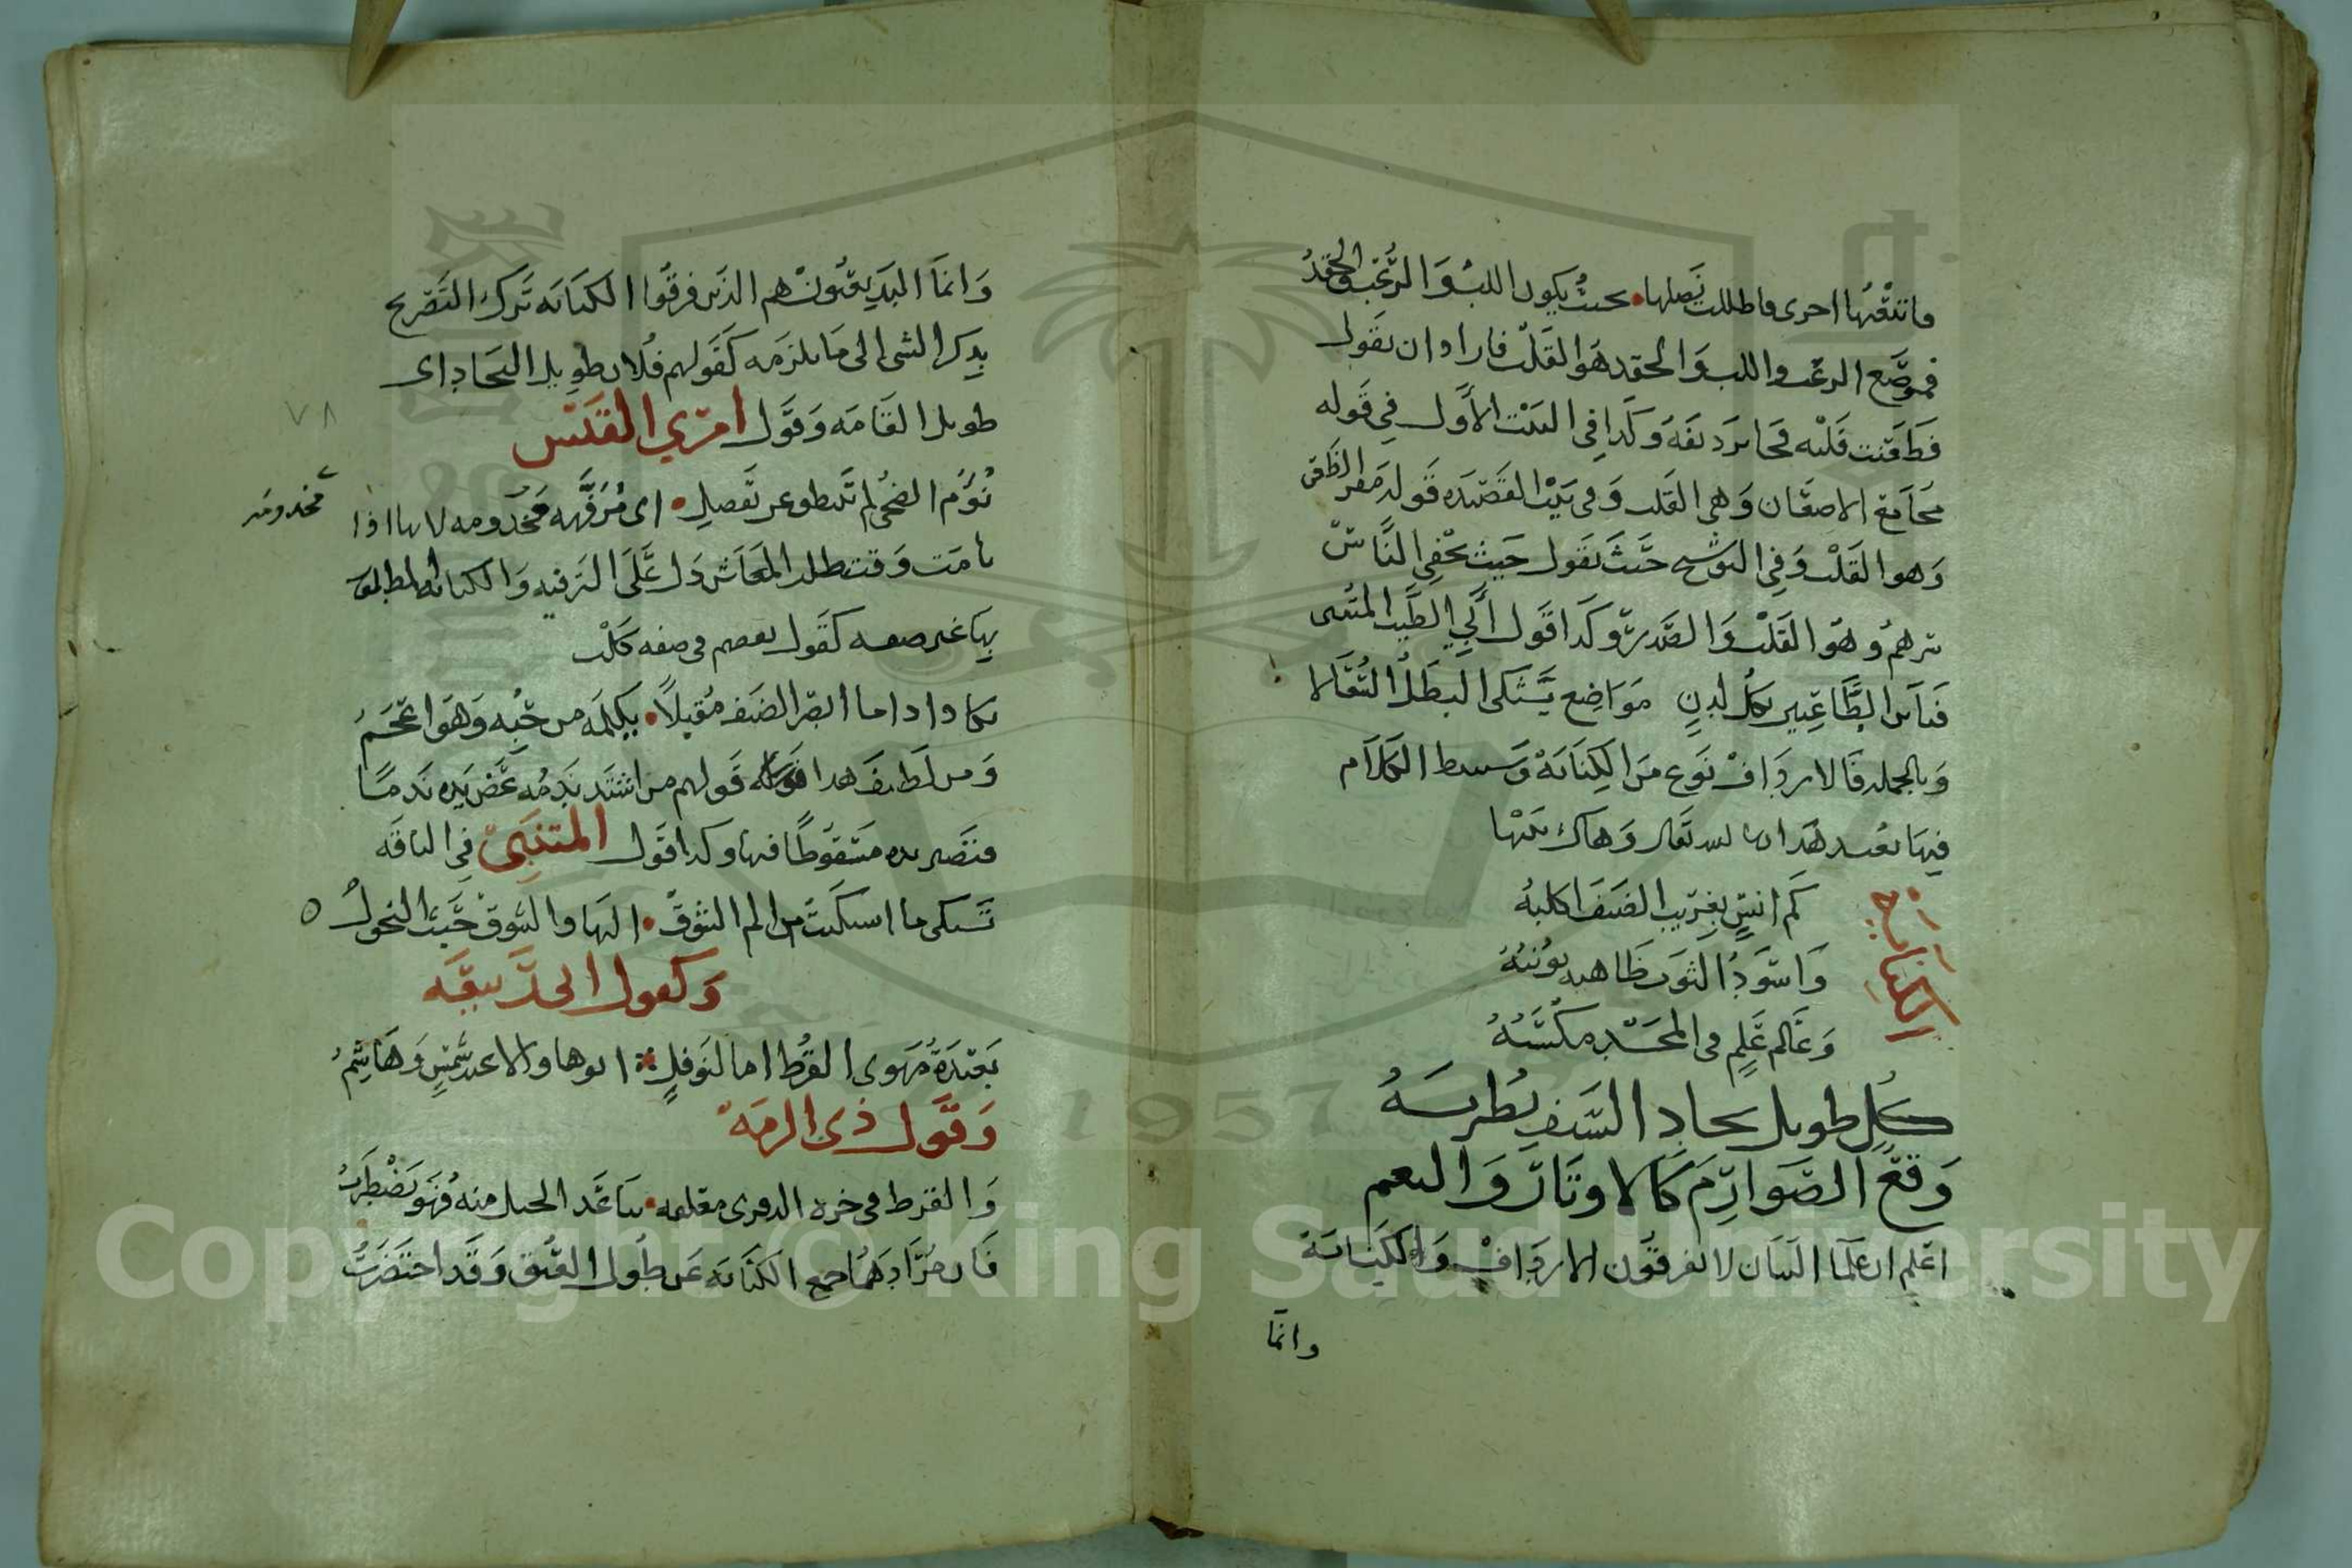 فاتبعتها اخرى فاطللت نصلها • بحيث يكون اللب والرعب والحقد
فموضع الرعب واللب والحقد هو القلب فاراد ان يقول
فطعنت قلبه فجا بردیفه وكذا في البيت الاول في قوله
مجامع الاضغان وهي القلب وفي بيت القصيده قوله مقر الظن
وهو القلب وفي التوشيح حيث يقول حيث يخفي الناس
سرهم وهو القلب والصدر وكذا قول أبي الطيب المتنبى
فتاس الطاعنين بكل لدن مواضع يشتكى البطل السعالا
وبالجمله فالارداف نوع من الكنايه وسسط الكلام
فيها بعيد هذا ان الله تعالى وهاك بيتها
الكناية
كم انس بغريب الضيف اكلبهُ
واسود الثوب ظاهر يونسهُ
وعالم علم فى المجد مكسبهُ
كل طويل نجاد السيف يطربهُ
وقع الصوارم كالاوتار والنعم
اعلم ان علما البيان لا يفرقون الارداف والكناية
وانما
وانما البديعيون هم الذين فرقوا الكنايه ترك التصريح
بذكر الشى الى ما يلزمه كقولهم فلان طويل النجاد اى
طويل القامه وقول امرئ القيس
٧٨
نؤم الضحى لم تنتطق عن تفضل • اى مرفهه مخدومه لانها اذا
مخدومه
نامت وقت طلب المعاش دل على الترفيه والكنايه المطلوب
بها غير صفه كقول بعضهم فى صفه كلب
يكاد اذا ما ابصر الضيف مقبلاً • يكلمه من حبه وهو اعجم
ومن لطيف هذا قولهم من اشتد ندمه عض يده ندماً
فتصير يده مسقوطاً فيها وكذا قول المتنبى في الناقه
تشكى ما اشتكيت من الم الشوق • اليها والشوق حيث النحولُ ٥
وكقول الحديقه
بعيدة مهوى القرط اما لنوفل • ابوها والا عبد شمس وهاشمُ
وقول ذى الرمة
والقرط فى حرة الذفرى معلقه • تباعد الحبل منه فهو يضطربُ
فان مرادهما جميع الكنايه عن طول العنق وقد اختصرتُ